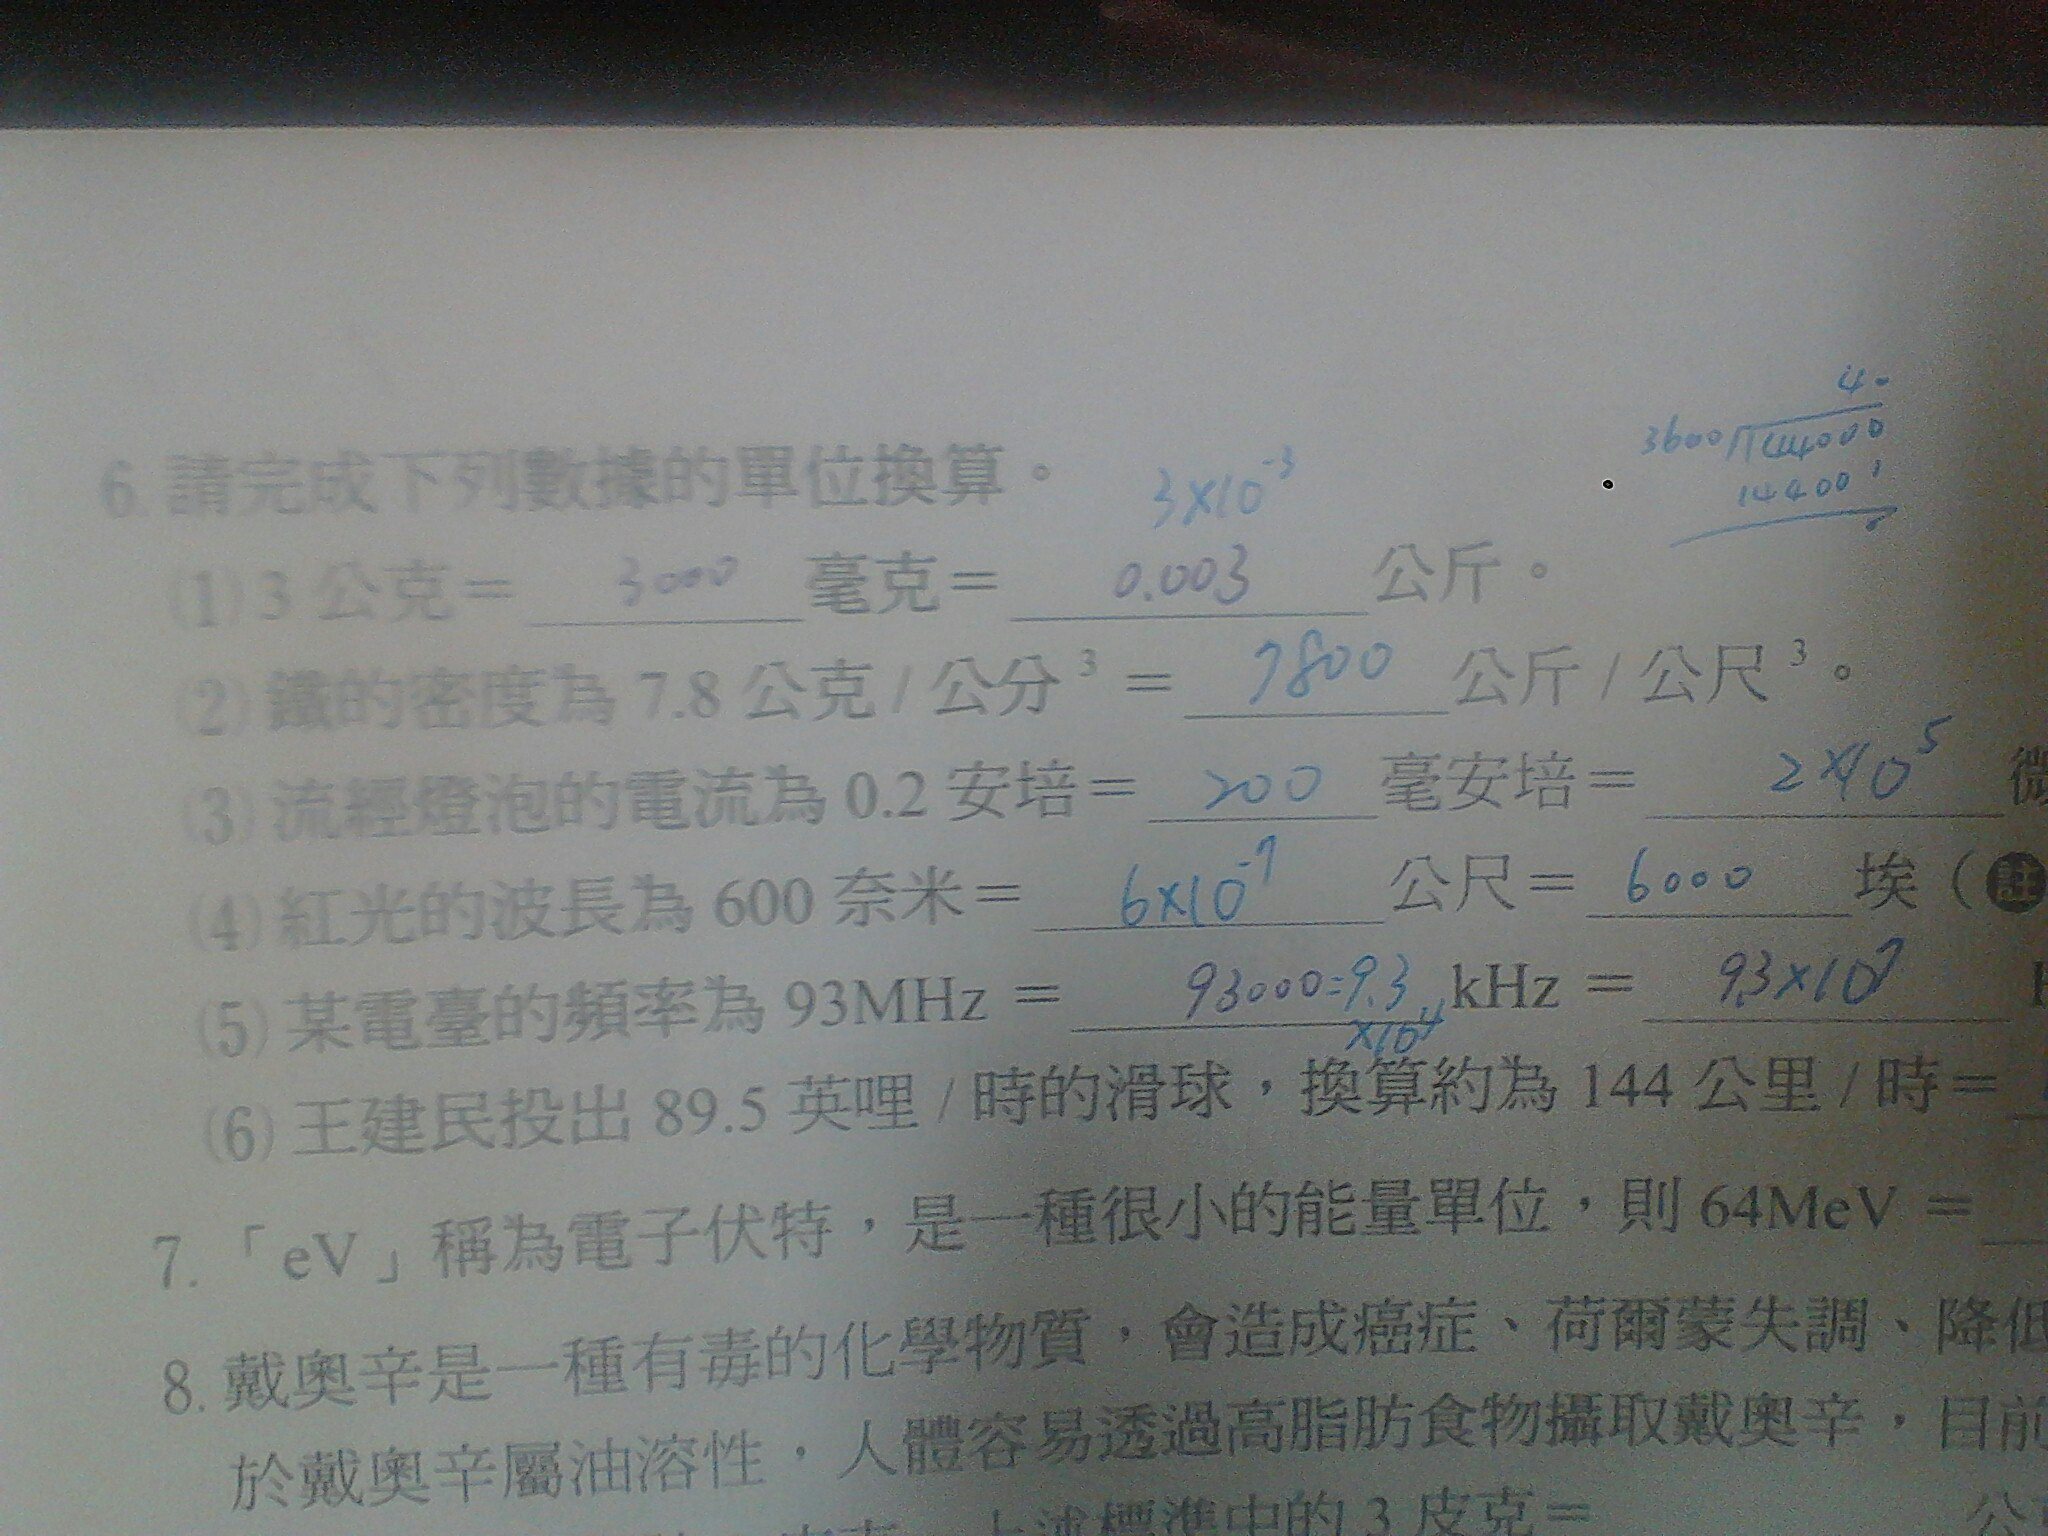 4.
3600 144000
14400
0
6. 請完成下列數據的單位換算。
3×10⁻³
(1) 3 公克＝ 3000 毫克＝ 0.003 公斤。
(2) 鐵的密度為 7.8 公克 / 公分³ ＝ 7800 公斤 / 公尺³。
(3) 流經燈泡的電流為 0.2 安培＝ 200 毫安培＝ 2×10⁵ 微
(4) 紅光的波長為 600 奈米＝ 6×10⁻⁷ 公尺＝ 6000 埃（註
(5) 某電臺的頻率為 93MHz ＝ 93000=9.3 ×10⁴ kHz ＝ 9.3×10⁷
(6) 王建民投出 89.5 英哩 / 時的滑球，換算約為 144 公里 / 時＝
7. 「eV」稱為電子伏特，是一種很小的能量單位，則 64MeV ＝
8. 戴奧辛是一種有毒的化學物質，會造成癌症、荷爾蒙失調、降低
於戴奧辛屬油溶性，人體容易透過高脂肪食物攝取戴奧辛，目前
上述標準中的 3 皮克＝